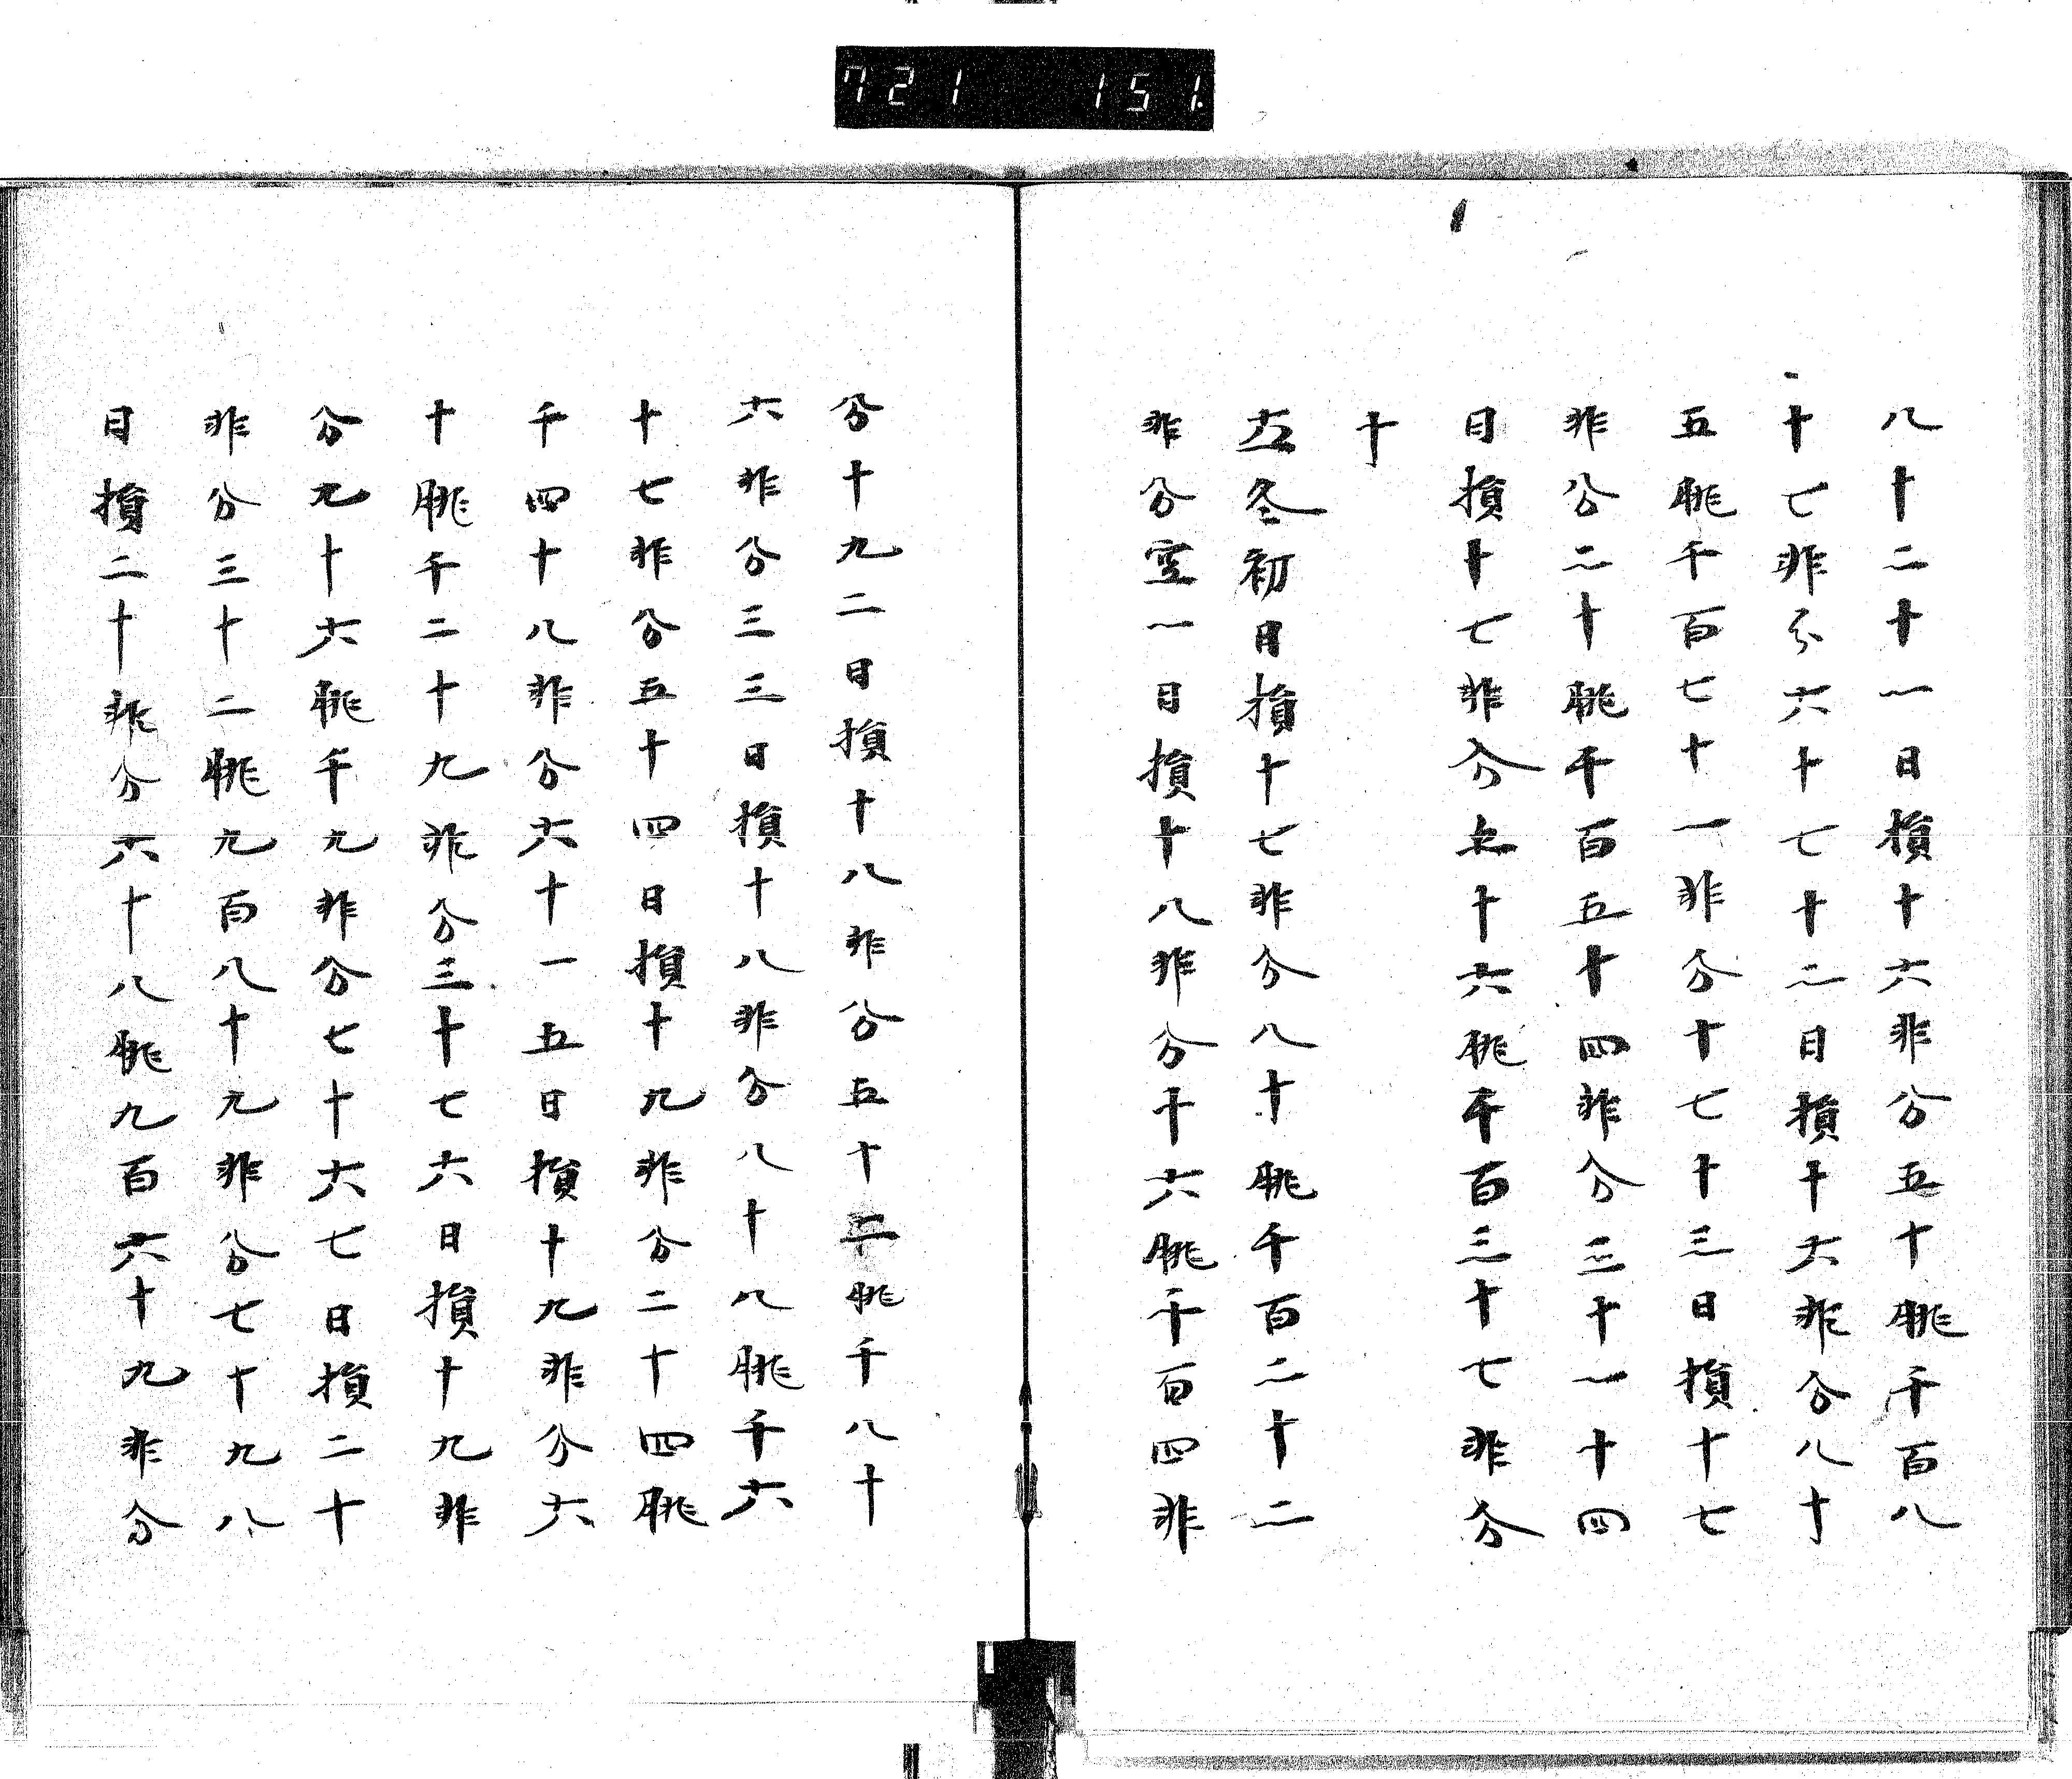 721 151
八十二十一日損十六非分五十朓千百八
十七非分六十七十二日損十六非分八十
五朓千百七十一非分十七十三日損十七
非分二十朓千百五十四非分三十一十四
日損十七非分五十六朓千百三十七非分
十
立冬初日損十七非分八十朓千百二十二
非分空一日損十八非分十六朓千百四非
分十九二日損十八非分五十二朓千八十
六非分三三日損十八非分八十八朓千六
十七非分五十四日損十九非分二十四朓
千四十八非分六十一五日損十九非分六
十朓千二十九非分三十七六日損十九非
分九十六朓千九非分七十六七日損二十
非分三十二朓九百八十九非分七十九八
日損二十非分六十八朓九百六十九非分